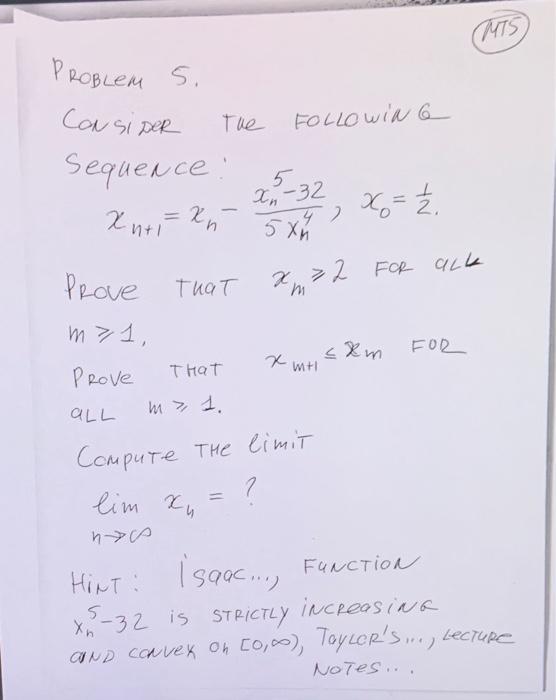 MT5
PROBLEM 5.
CONSIDER THE FOLLOWING
Sequence:
x_{n+1} = x_n - \frac{x_n^5-32}{5x_n^4}, x_0 = \frac{1}{2}.
PROVE THAT x_m ≥ 2 FOR ALL
m ≥ 1,
PROVE THAT x_{m+1} ≤ x_m FOR
ALL m ≥ 1.
COMPUTE THE limit
lim x_n = ?
n→∞
HINT: Isaac..., FUNCTION
x_n^5-32 is STRICTLY increasing
AND convex on [0,∞), TAYLOR'S..., LECTURE
NOTES...